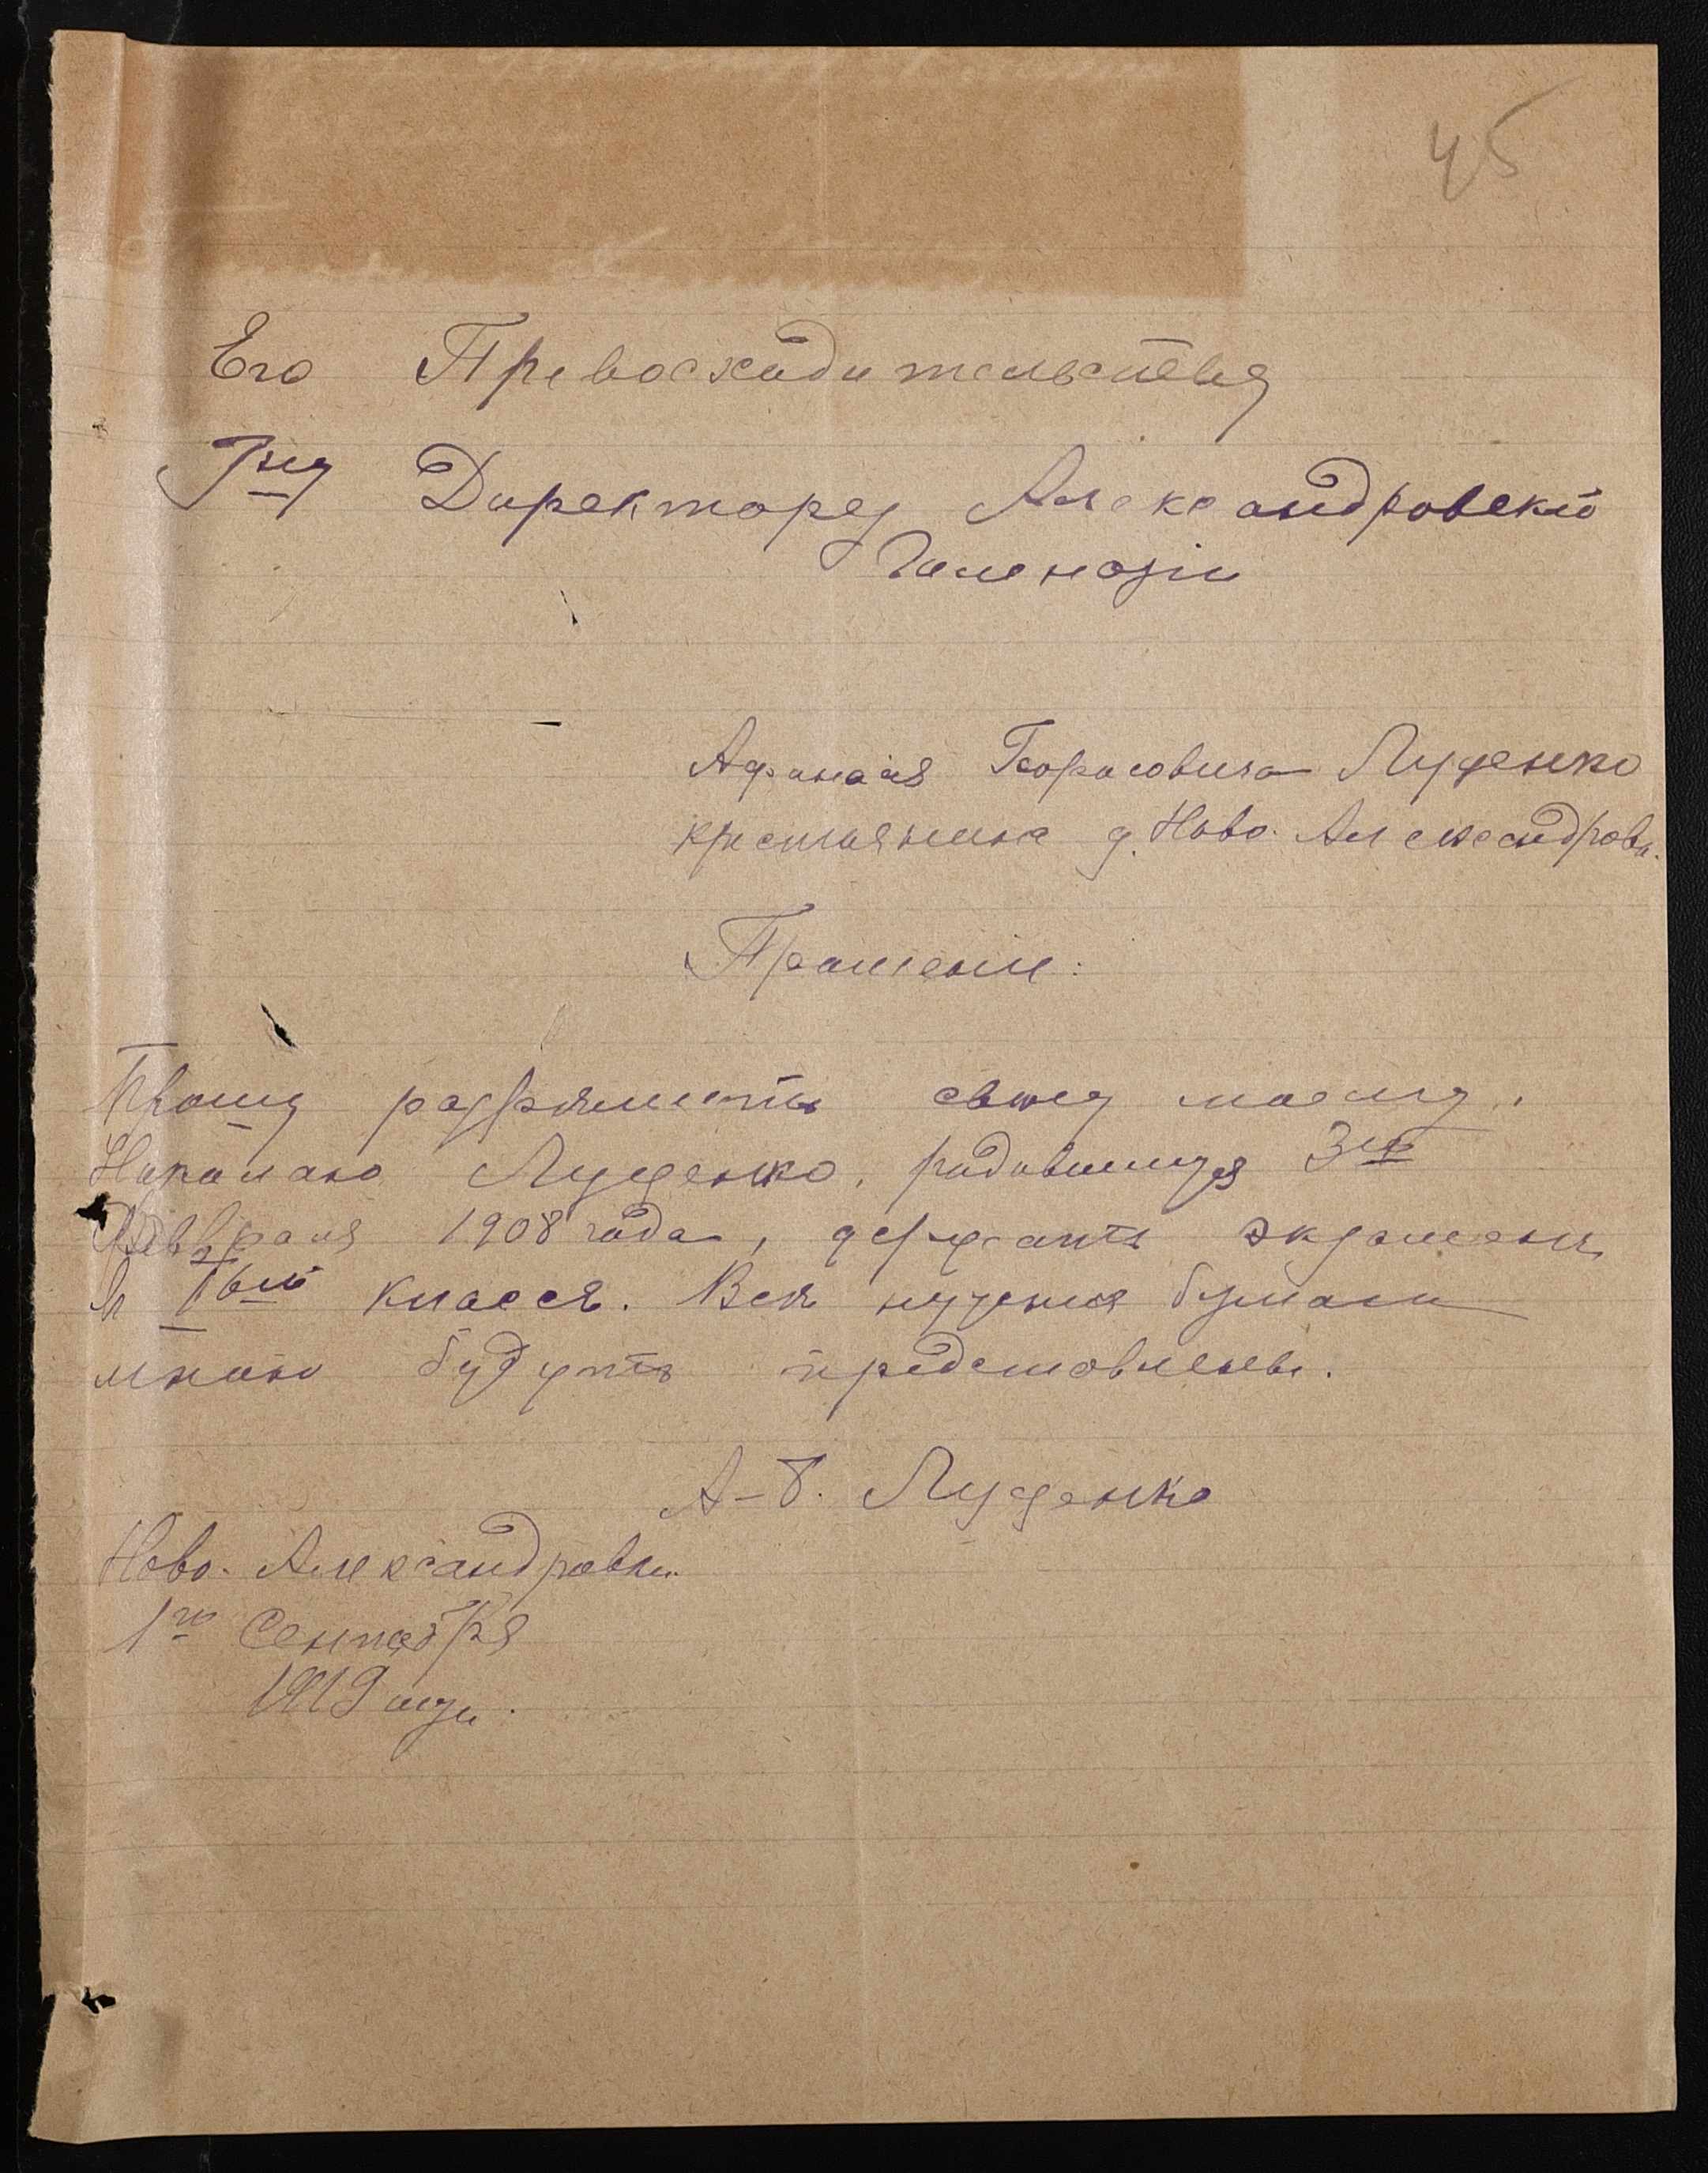 45
Его Превосходительству
Г-ну Директору Александровской
Гимназіи
Афанасія Борисовича Луценко
крестьянина д. Ново-Александровк.
Прошеніе:
Прошу разрѣшить сыну моему,
Николаю Луценко, родившемуся 3го
Февраля 1908 года, держать экзамены
в 1вый классъ. Все нужныя бумаги
мною будутъ представлены.
А-Б. Луценко
Ново-Александровка
1го Сентября
1919 года.